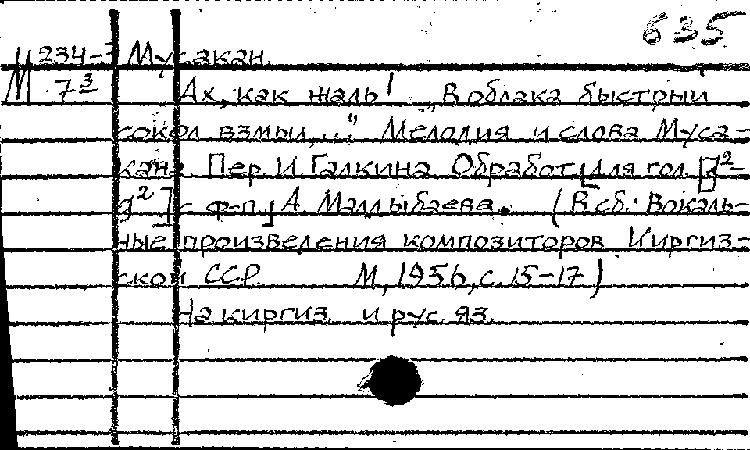 635
М 234-3 Мусакан.
7³ Ах, как жаль! „В облака быстрый
сокол взмыл,..." Мелодия и слова Муса-
кана. Пер. И. Галкина. Обработ. [для гол. [
g²] с ф-п.] А. Малдыбаева. (В сб.: Вокаль-
ные произведения композиторов Киргиз-
ской ССР. М., 1956, с. 15-17)
На киргиз. и рус. яз.